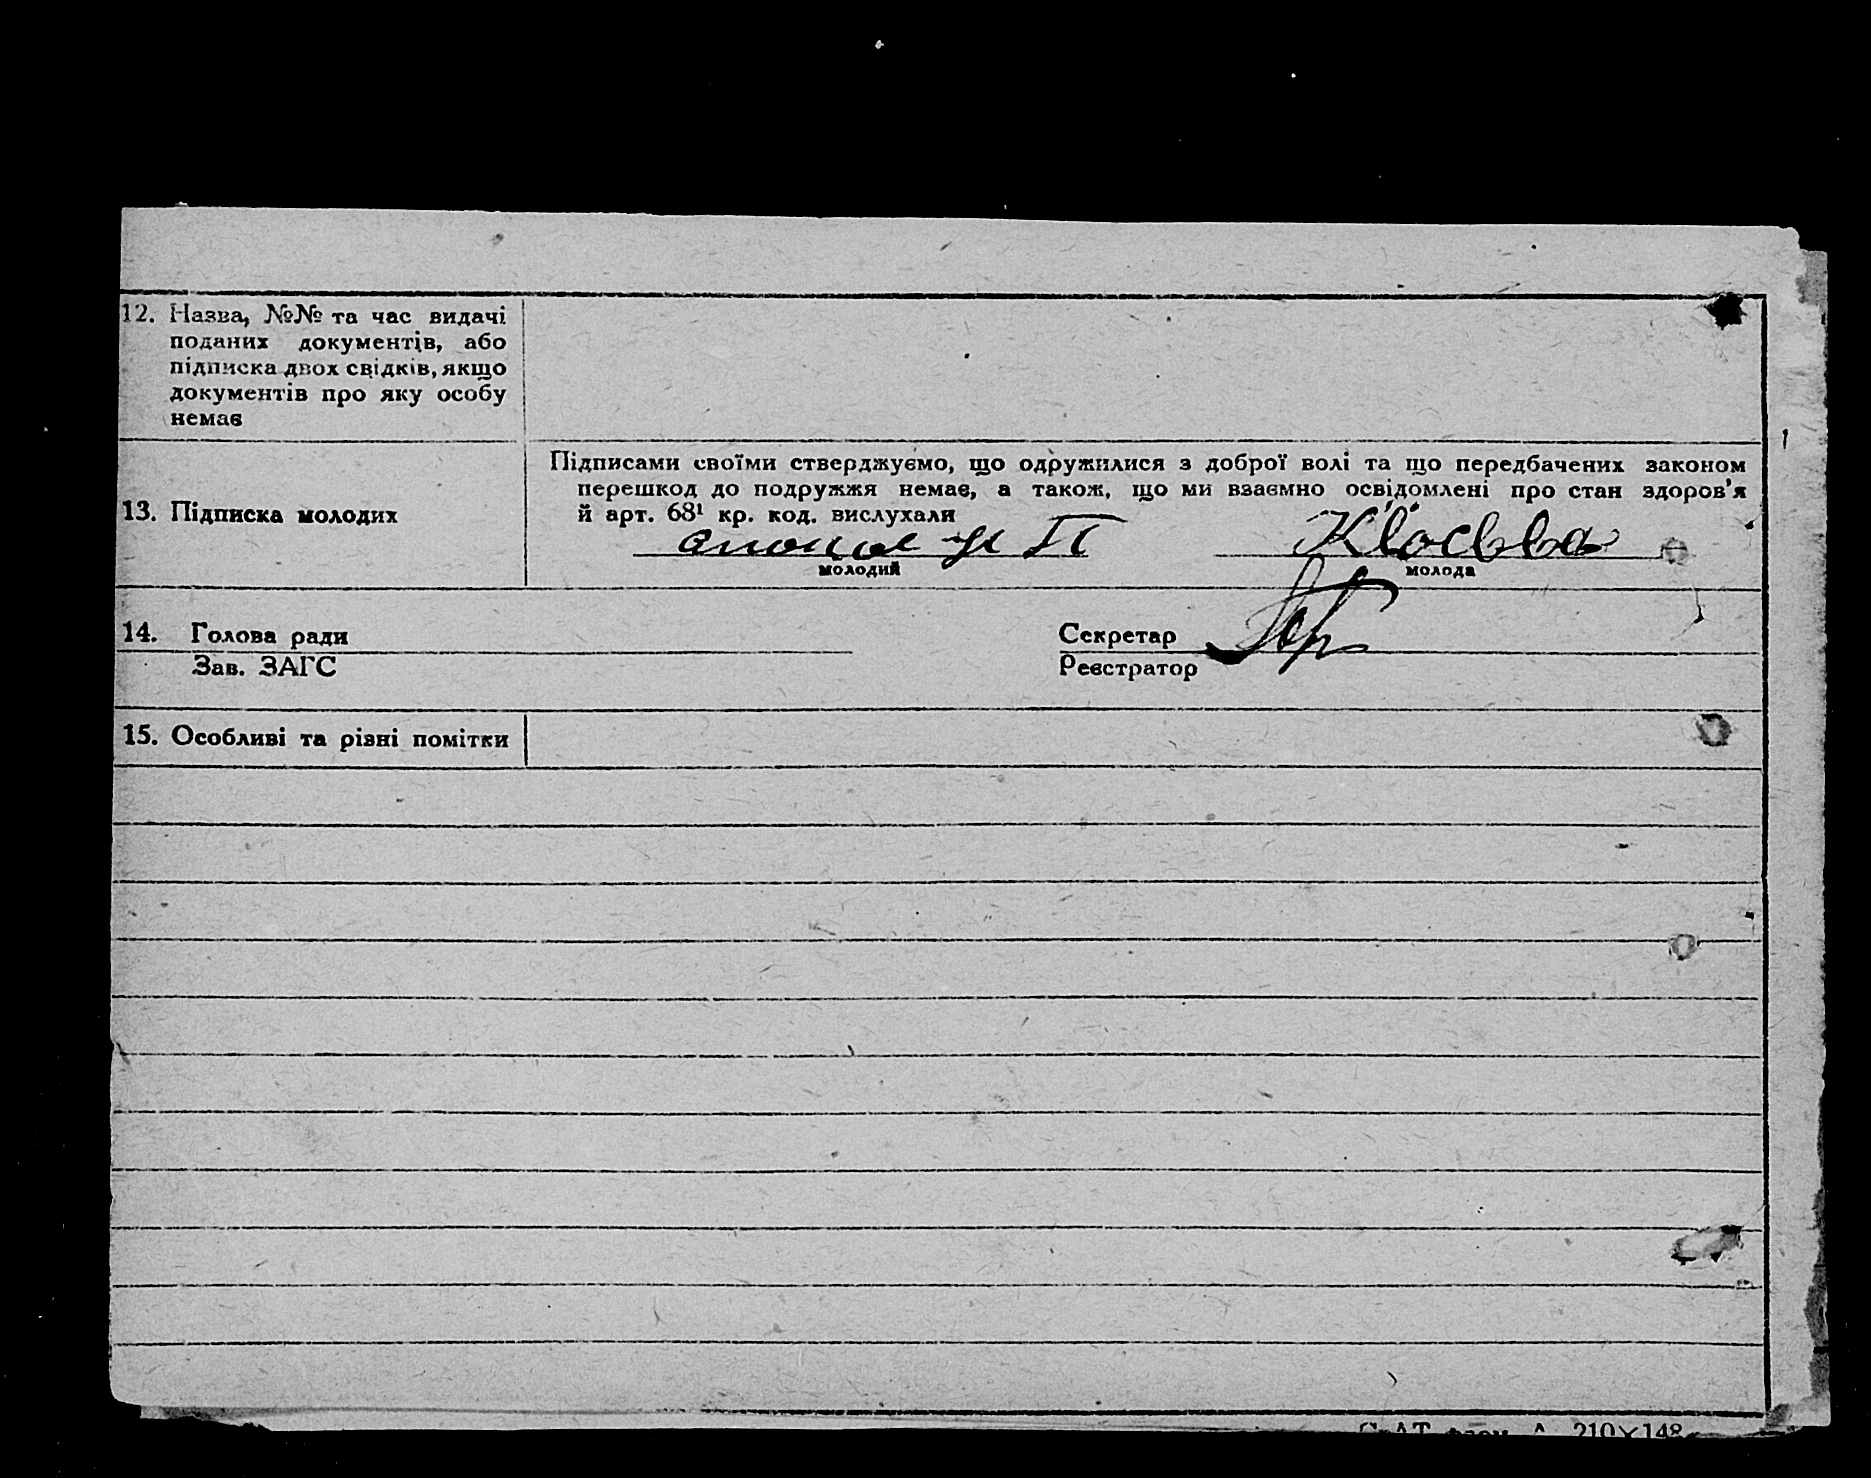 12. Назва, №№ та час видачі
поданих документів, або
підписка двох свідків, якщо
документів про яку особу
немає
Підписами своїми стверджуємо, що одружилися з доброї волі та що передбачених законом
перешкод до подружжя немає, а також, що ми взаємно освідомлені про стан здоров'я
13. Підписка молодих
й арт. 68¹ кр. код. вислухали
молодий
молода
14. Голова ради
Секретар
Зав. ЗАГС
Реєстратор
15. Особливі та різні помітки
210×148